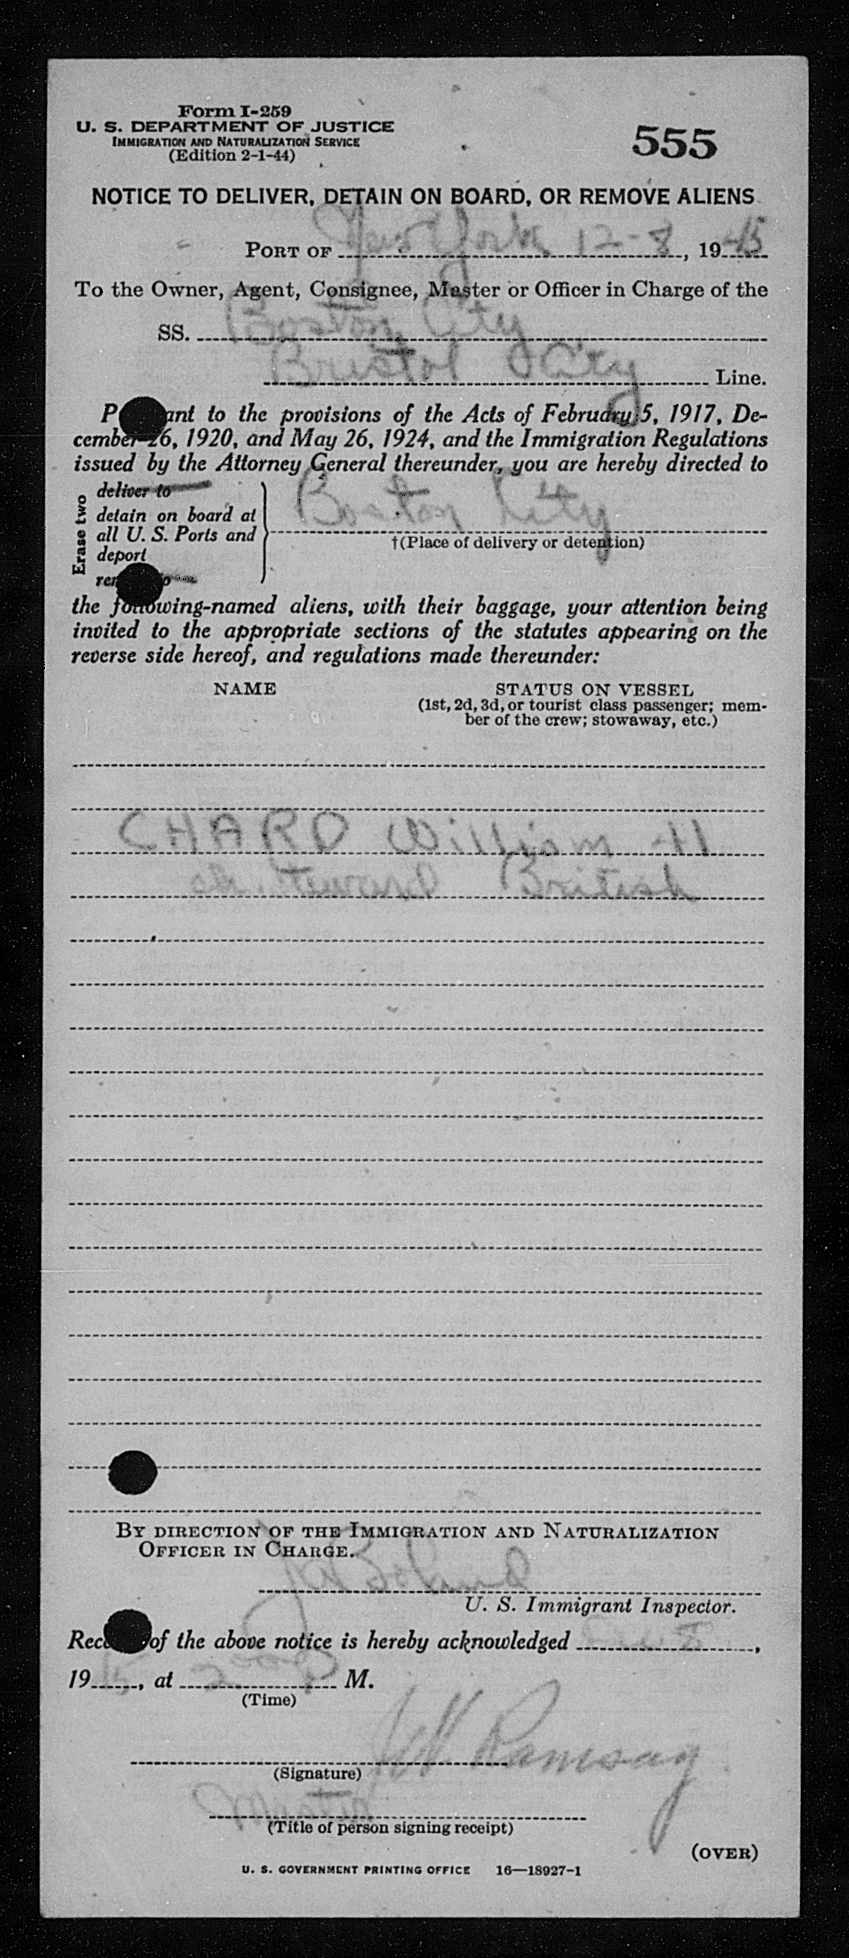 Form I-259
U. S. DEPARTMENT OF JUSTICE
IMMIGRATION AND NATURALIZATION SERVICE
(Edition 2-1-44)
555
NOTICE TO DELIVER, DETAIN ON BOARD, OR REMOVE ALIENS
PORT OF New York 12-8, 1945
To the Owner, Agent, Consignee, Master or Officer in Charge of the
SS. Boston City
Bristol City Line.
P ant to the provisions of the Acts of February 5, 1917, De-
cember 26, 1920, and May 26, 1924, and the Immigration Regulations
issued by the Attorney General thereunder, you are hereby directed to
Erase two
deliver to
detain on board at
all U. S. Ports and
deport
Boston City
†(Place of delivery or detention)
the following-named aliens, with their baggage, your attention being
invited to the appropriate sections of the statutes appearing on the
reverse side hereof, and regulations made thereunder:
NAME
STATUS ON VESSEL
(1st, 2d, 3d, or tourist class passenger; mem-
ber of the crew; stowaway, etc.)
CHARD William 41
ch. Steward British
BY DIRECTION OF THE IMMIGRATION AND NATURALIZATION
OFFICER IN CHARGE.
U. S. Immigrant Inspector.
of the above notice is hereby acknowledged ,
19 , at M.
(Time)
Ramsay
(Signature)
Master
(Title of person signing receipt)
(OVER)
U. S. GOVERNMENT PRINTING OFFICE 16—18927-1